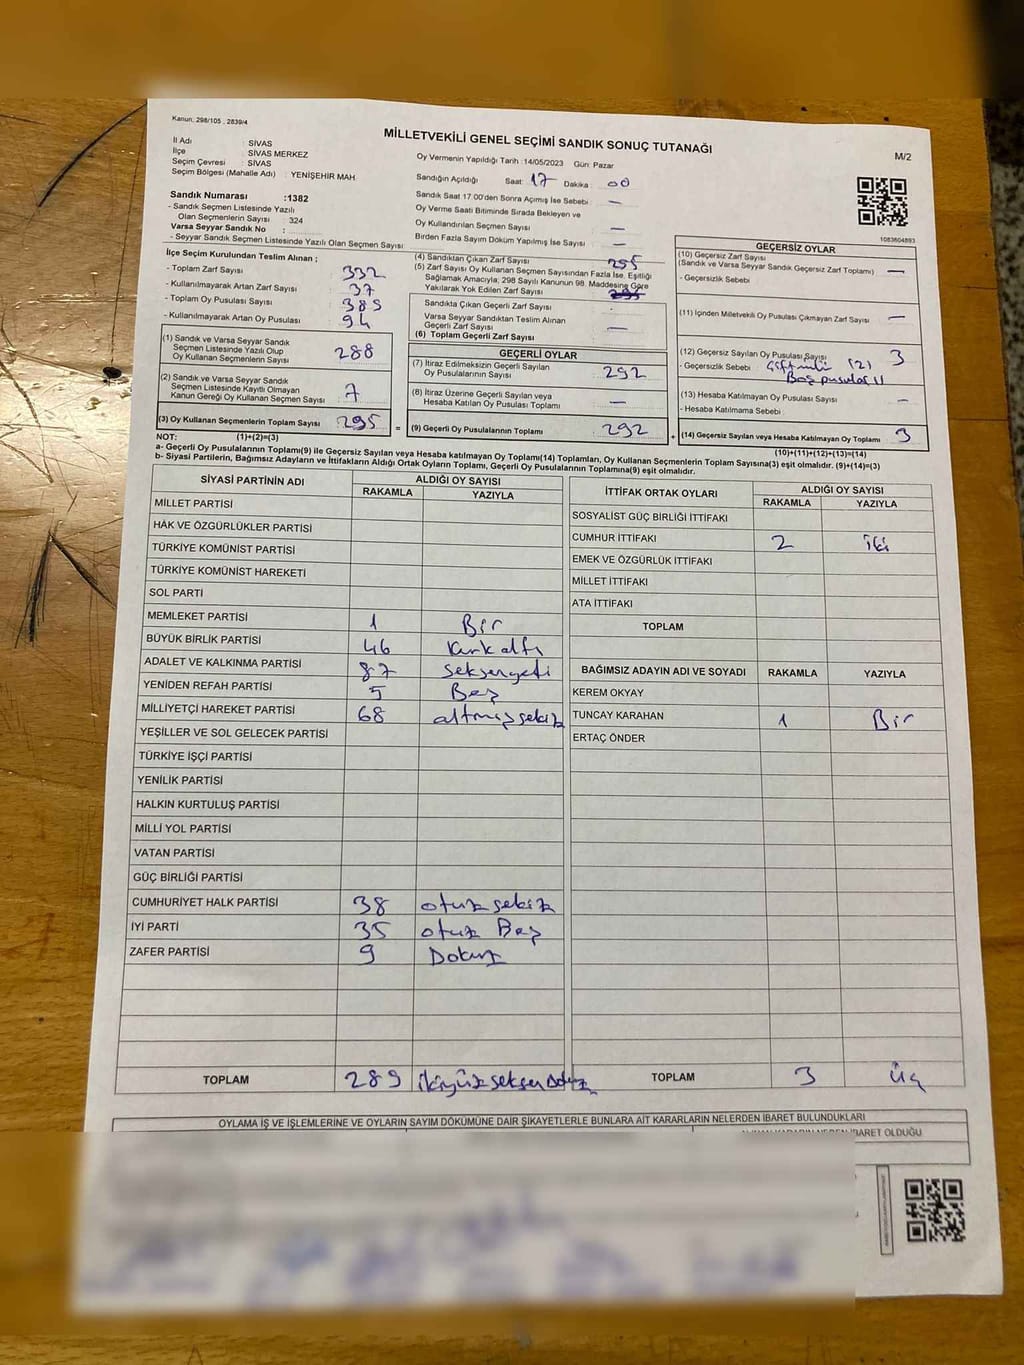 Kanun. 298/105 , 2839/4
MİLLETVEKİLİ GENEL SEÇİMİ SANDIK SONUÇ TUTANAĞI
M/2
İl Adı : SİVAS
İlçe : SİVAS MERKEZ
Seçim Çevresi : SİVAS
Seçim Bölgesi (Mahalle Adı) : YENİŞEHİR MAH.
Sandık Numarası :1382
- Sandık Seçmen Listesinde Yazılı
Olan Seçmenlerin Sayısı : 324
Varsa Seyyar Sandık No :
- Seyyar Sandık Seçmen Listesinde Yazılı Olan Seçmen Sayısı:
Oy Vermenin Yapıldığı Tarih :14/05/2023 Gün: Pazar
Sandığın Açıldığı Saat: 17 Dakika : 00
Sandık Saat 17.00'den Sonra Açımış İse Sebebi : —
Oy Verme Saati Bitiminde Sırada Bekleyen ve
Oy Kullandırılan Seçmen Sayısı : —
Birden Fazla Sayım Döküm Yapılmış İse Sayısı : —
1083604893
İlçe Seçim Kurulundan Teslim Alınan ;
- Toplam Zarf Sayısı : 332
- Kullanılmayarak Artan Zarf Sayısı : 37
- Toplam Oy Pusulası Sayısı : 385
- Kullanılmayarak Artan Oy Pusulası : 94
(1) Sandık ve Varsa Seyyar Sandık
Seçmen Listesinde Yazılı Olup
Oy Kullanan Seçmenlerin Sayısı : 288
(2) Sandık ve Varsa Seyyar Sandık
Seçmen Listesinde Kayıtlı Olmayan
Kanun Gereği Oy Kullanan Seçmen Sayısı : 7
(3) Oy Kullanan Seçmenlerin Toplam Sayısı : 295
(4) Sandıktan Çıkan Zarf Sayısı : 295
(5) Zarf Sayısı Oy Kullanan Seçmen Sayısından Fazla İse, Eşitliği
Sağlamak Amacıyla, 298 Sayılı Kanunun 98. Maddesine Göre
Yakılarak Yok Edilen Zarf Sayısı : 295
Sandıkta Çıkan Geçerli Zarf Sayısı :
Varsa Seyyar Sandıktan Teslim Alınan
Geçerli Zarf Sayısı : —
(6) Toplam Geçerli Zarf Sayısı :
GEÇERLİ OYLAR
(7) İtiraz Edilmeksizin Geçerli Sayılan
Oy Pusulalarının Sayısı : 292
(8) İtiraz Üzerine Geçerli Sayılan veya
Hesaba Katılan Oy Pusulası Toplamı : —
= (9) Geçerli Oy Pusulalarının Toplamı : 292
GEÇERSİZ OYLAR
(10) Geçersiz Zarf Sayısı
(Sandık ve Varsa Seyyar Sandık Geçersiz Zarf Toplamı) : —
- Geçersizlik Sebebi :
(11) İçinden Milletvekili Oy Pusulası Çıkmayan Zarf Sayısı : —
(12) Geçersiz Sayılan Oy Pusulası Sayısı : 3
- Geçersizlik Sebebi : (2)
(13) Hesaba Katılmayan Oy Pusulası Sayısı : —
- Hesaba Katılmama Sebebi :
+ (14) Geçersiz Sayılan veya Hesaba Katılmayan Oy Toplamı : 3
NOT: (1)+(2)=(3) (10)+(11)+(12)+(13)=(14)
a- Geçerli Oy Pusulalarının Toplamı(9) ile Geçersiz Sayılan veya Hesaba katılmayan Oy Toplamı(14) Toplamları, Oy Kullanan Seçmenlerin Toplam Sayısına(3) eşit olmalıdır. (9)+(14)=(3)
b- Siyasi Partilerin, Bağımsız Adayların ve İttifakların Aldığı Ortak Oyların Toplamı, Geçerli Oy Pusulalarının Toplamına(9) eşit olmalıdır.
SİYASİ PARTİNİN ADI ALDIĞI OY SAYISI
RAKAMLA YAZIYLA
MİLLET PARTİSİ
HAK VE ÖZGÜRLÜKLER PARTİSİ
TÜRKİYE KOMÜNİST PARTİSİ
TÜRKİYE KOMÜNİST HAREKETİ
SOL PARTİ
MEMLEKET PARTİSİ 1 Bir
BÜYÜK BİRLİK PARTİSİ 46 kırk altı
ADALET VE KALKINMA PARTİSİ 87 seksen yedi
YENİDEN REFAH PARTİSİ 5 Beş
MİLLİYETÇİ HAREKET PARTİSİ 68 altmış sekiz
YEŞİLLER VE SOL GELECEK PARTİSİ
TÜRKİYE İŞÇİ PARTİSİ
YENİLİK PARTİSİ
HALKIN KURTULUŞ PARTİSİ
MİLLİ YOL PARTİSİ
VATAN PARTİSİ
GÜÇ BİRLİĞİ PARTİSİ
CUMHURİYET HALK PARTİSİ 38 otuz sekiz
İYİ PARTİ 35 otuz Beş
ZAFER PARTİSİ 9 Dokuz
TOPLAM 289 ikiyüz seksen Dokuz
İTTİFAK ORTAK OYLARI ALDIĞI OY SAYISI
RAKAMLA YAZIYLA
SOSYALİST GÜÇ BİRLİĞİ İTTİFAKI
CUMHUR İTTİFAKI 2 iki
EMEK VE ÖZGÜRLÜK İTTİFAKI
MİLLET İTTİFAKI
ATA İTTİFAKI
TOPLAM
BAĞIMSIZ ADAYIN ADI VE SOYADI RAKAMLA YAZIYLA
KEREM OKYAY
TUNCAY KARAHAN 1 Bir
ERTAÇ ÖNDER
TOPLAM 3 üç
OYLAMA İŞ VE İŞLEMLERİNE VE OYLARIN SAYIM DÖKÜMÜNE DAİR ŞİKAYETLERLE BUNLARA AİT KARARLARIN NELERDEN İBARET BULUNDUKLARI
İBARET OLDUĞU